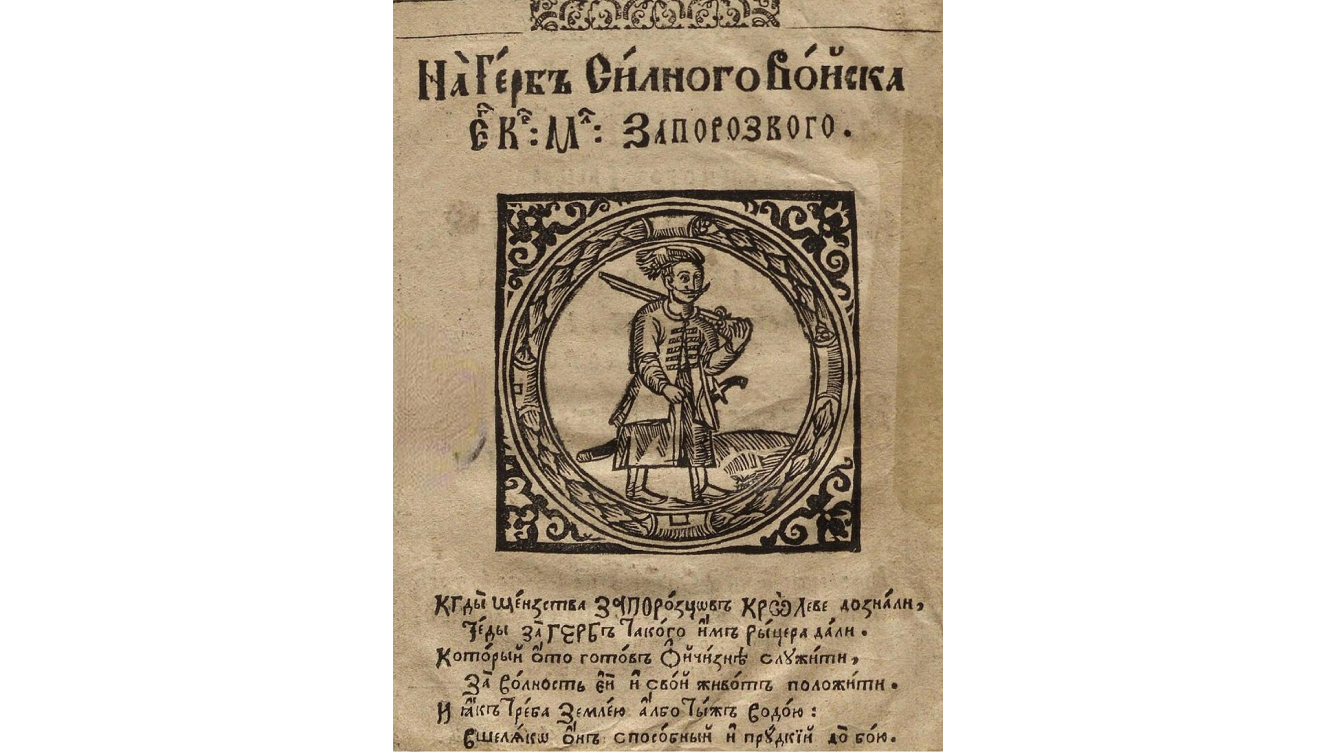 На̀ Ге́рбъ Си́лного Во́йска
Е҆гⷪ҇ Кⷬ҇: Млⷭ҇: Запорозкого.
Кгды̀ ще́нзства Запоро́зцѡвъ Крѡ́леве дозна́ли,
Те́ды за̀ Гербъ тако́го и҆́мъ ры́цера да́ли.
Кото́рый ѻ҆́то гото́въ Ѻ҆йчи́знѣ служи́ти,
За̀ во́лность е҆́й и҆ сво́й живо́тъ положи́ти.
И ꙗ҆́къ тре́ба земле́ю а҆́лбо ты́жъ водо́ю:
Вшеля́кѡ ѻ҆́нъ спосо́бный и҆ пру́дкїй до̀ бо́ю.